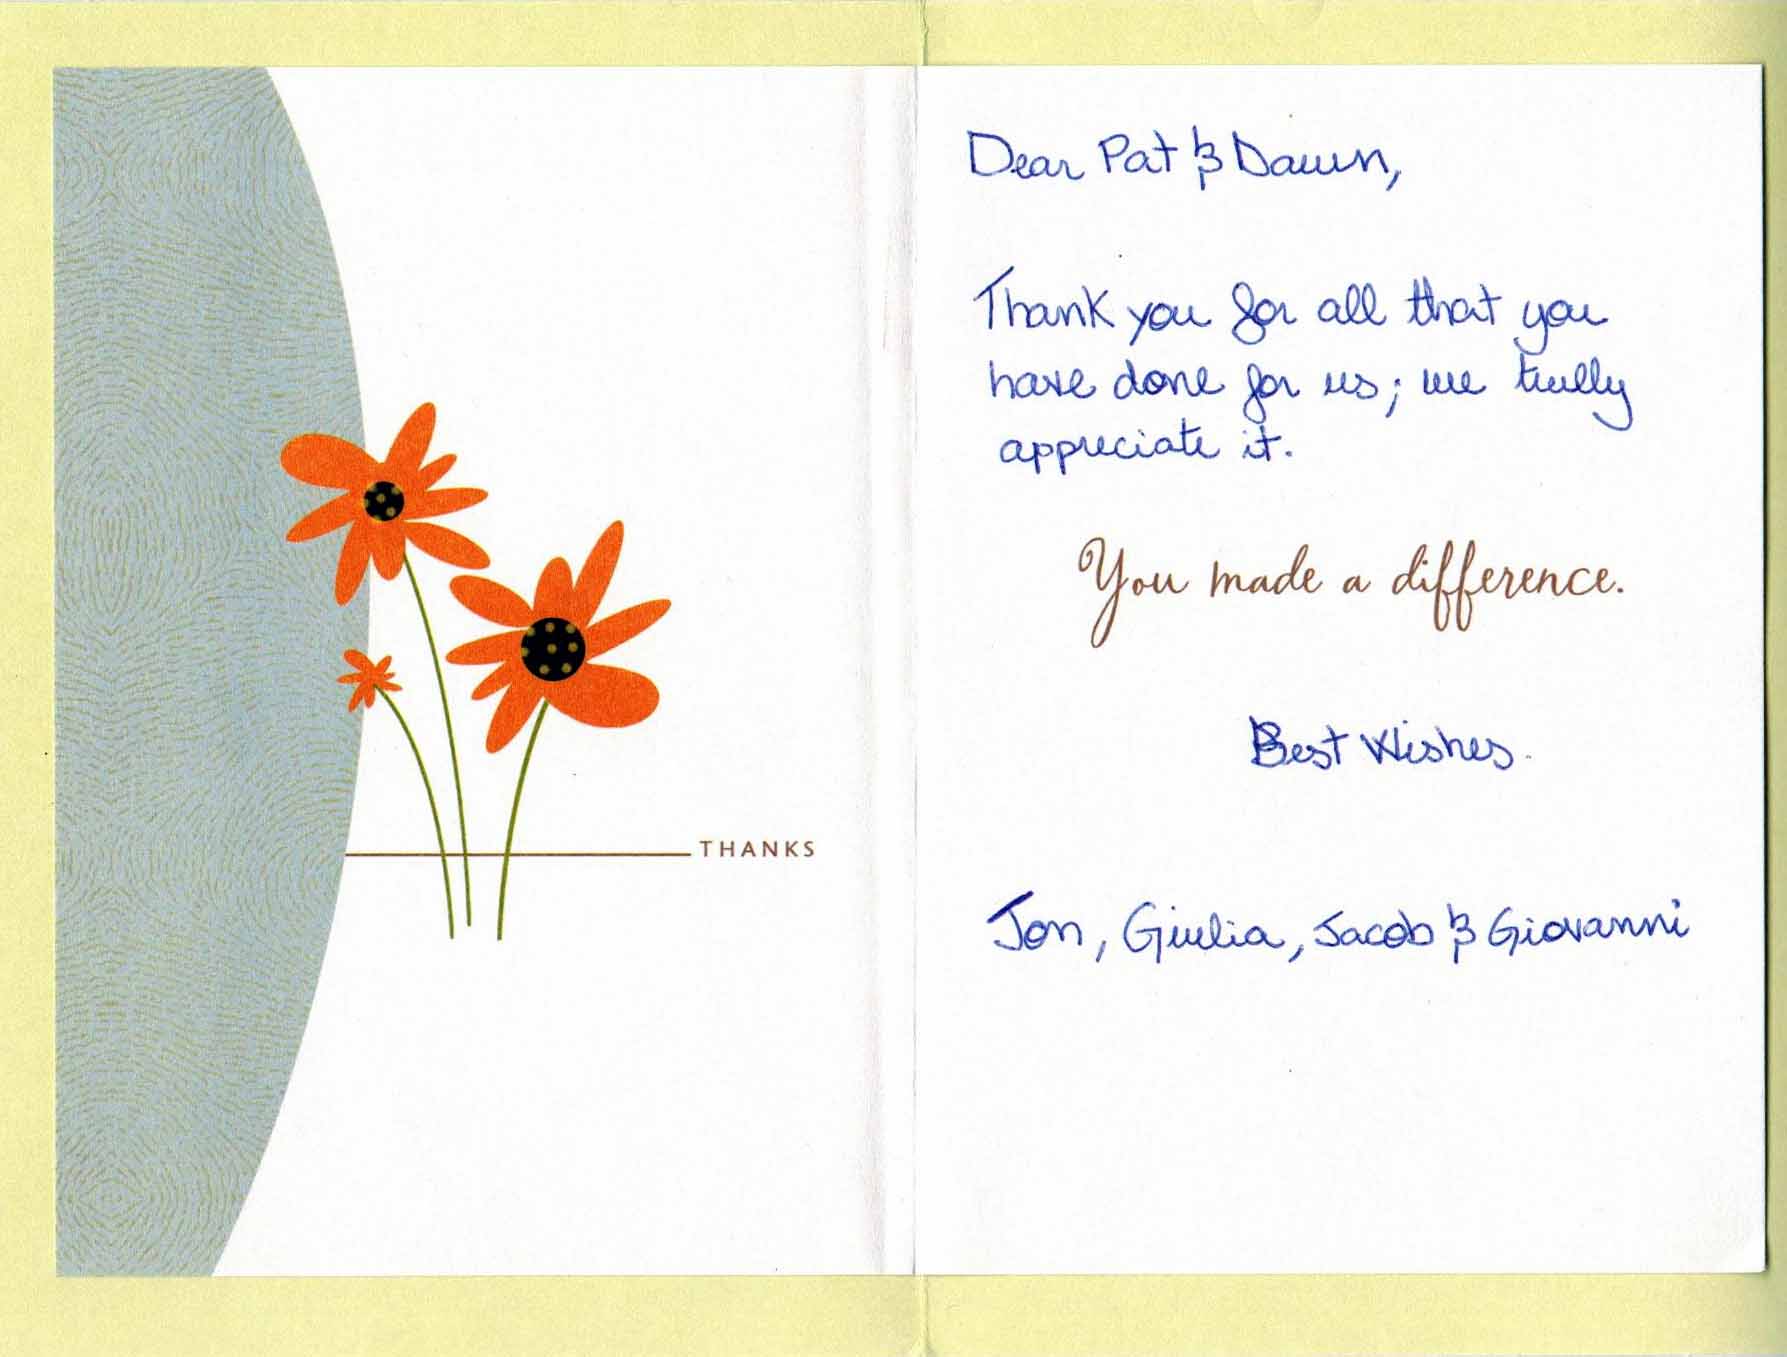 THANKS
Dear Pat & Dawn,
Thank you for all that you
have done for us; we trully
appreciate it.
You made a difference.
Best Wishes.
Jon, Giulia, Jacob & Giovanni